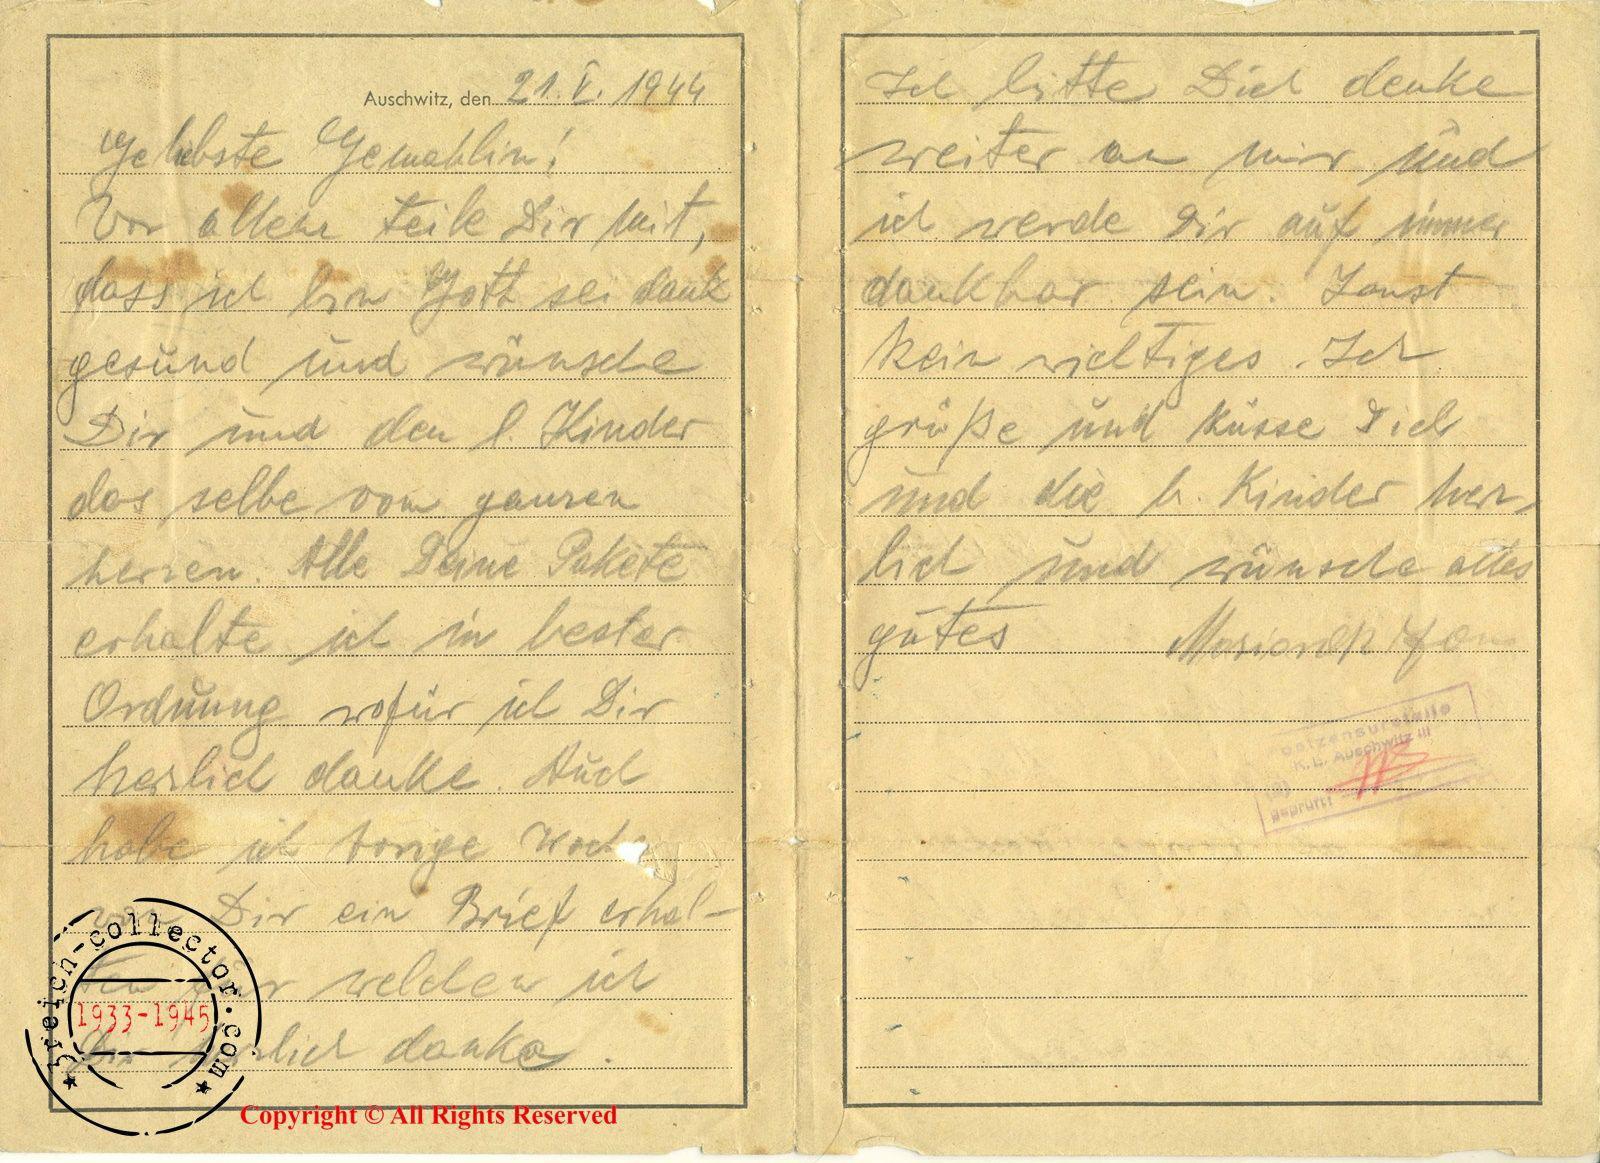 Auschwitz, den 21. V. 1944
Geliebste Gemahlin!
Vor allem teile Dir mit,
dass ich bin Gott sei dank
gesund und wünsche
Dir und den l. Kinder
das selbe vom ganzen
herzen. Alle Deine Pakete
erhalte ich in bester
Ordnung wofür ich Dir
herzlich danke. Auch
habe ich vorige
von Dir ein Brief erhal-
ten für welchen ich
Dir herzlich danke.
Ich bitte Dich denke
weiter an mir und
ich werde Dir auf immer
dankbar sein. Sonst
kein wichtiges. Ich
grüße und küsse Dich
und die l. Kinder herz-
lich und wünsche alles
gutes
Postzensurstelle
K. L. Auschwitz III
geprüft:
3reich-collector.com
1933-1945
Copyright © All Rights Reserved